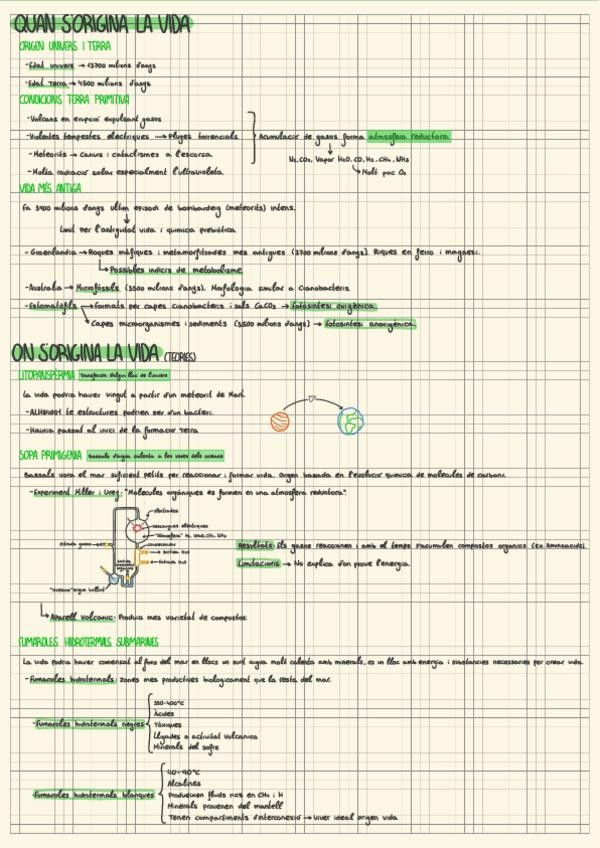 QUAN S'ORIGINA LA VIDA
ORIGEN UNIVERS I TERRA
-Edat univers → 13700 milions d'anys
-Edat Terra → 4500 milions d'anys
CONDICIONS TERRA PRIMITIVA
-Volcans en erupció expulsant gasos
-Violentes tempestes elèctriques → Pluges torrencials
Acumulació de gasos forma atmosfera reductora
-Meteorits → Canvis i cataclismes a l'escorsa
N₂, CO₂, Vapor H₂O, CO, H₂, CH₄, NH₃
-Molta radiació solar especialment l'ultraviolata
Molt poc O₂
VIDA MÉS ANTIGA
Fa 3900 milions d'anys últim episodi de bombardeig (meteorits) intens.
Límit per l'antiguitat vida i química prebiòtica
-Groenlandia → Roques màfiques i metamorfitzades més antigues (3700 milions d'anys). Riques en ferro i magnesi.
Possibles indicis de metabolisme
-Australia → Microfòssils (3500 milions d'anys). Morfologia similar a Cianobacteris
-Estomatòfils → Formats per capes cianobacteris i sals CaCO₃ → fotosíntesi oxigènica
Capes microorganismes i sediments (3500 milions d'anys) → fotosíntesi anoxigènica
ON S'ORIGINA LA VIDA (TEORIES)
LITOPANSPÈRMIA
La vida podria haver vingut a partir d'un meteorit de Mart.
-ALH84001 té estructures podrien ser d'un bacteri.
-Hauria passat al inici de la formació terra
SOPA PRIMIGENIA Bassals d'aigua calenta a les vores dels oceans
Bassals vora el mar suficient petits per reaccionar i formar vida. Origen basada en l'evolució química de molècules de carboni.
-Experiment Miller i Urey: "Molècules orgàniques es formen en una atmosfera reductora".
elèctrodes
Descargues elèctriques
"Atmosfera" H₂, H₂O, CH₄, NH₃
Entrada gasos
condensador
Sortida H₂O
Entrada H₂O
"oceano" aigua bullint
Resultats: Els gasos reaccionen i amb el temps s'acumulen compostos orgànics (Ex: Aminoàcids).
Limitacions → No explica d'on prové l'energia.
Aparell volcànic: Produïa més varietat de compostos
FUMAROLES HIDROTERMALS SUBMARINES
La vida podria haver començat al fons del mar en llocs on surt aigua molt calenta amb minerals, es un lloc amb energia i substàncies necessàries per crear vida.
-Fumaroles hidrotermals: zones més productives biològicament que la resta del mar.
350-400°C
Àcides
-Fumaroles hidrotermals negres
Tòxiques
Lligades a activitat volcànica
Minerals del sofre
40-90°C
Alcalines
-Fumaroles hidrotermals blanques
Produeixen fluids rics en CH₄ i H
Minerals provenen del mantell
Tenen compartiments d'interconexió → Viver ideal origen vida